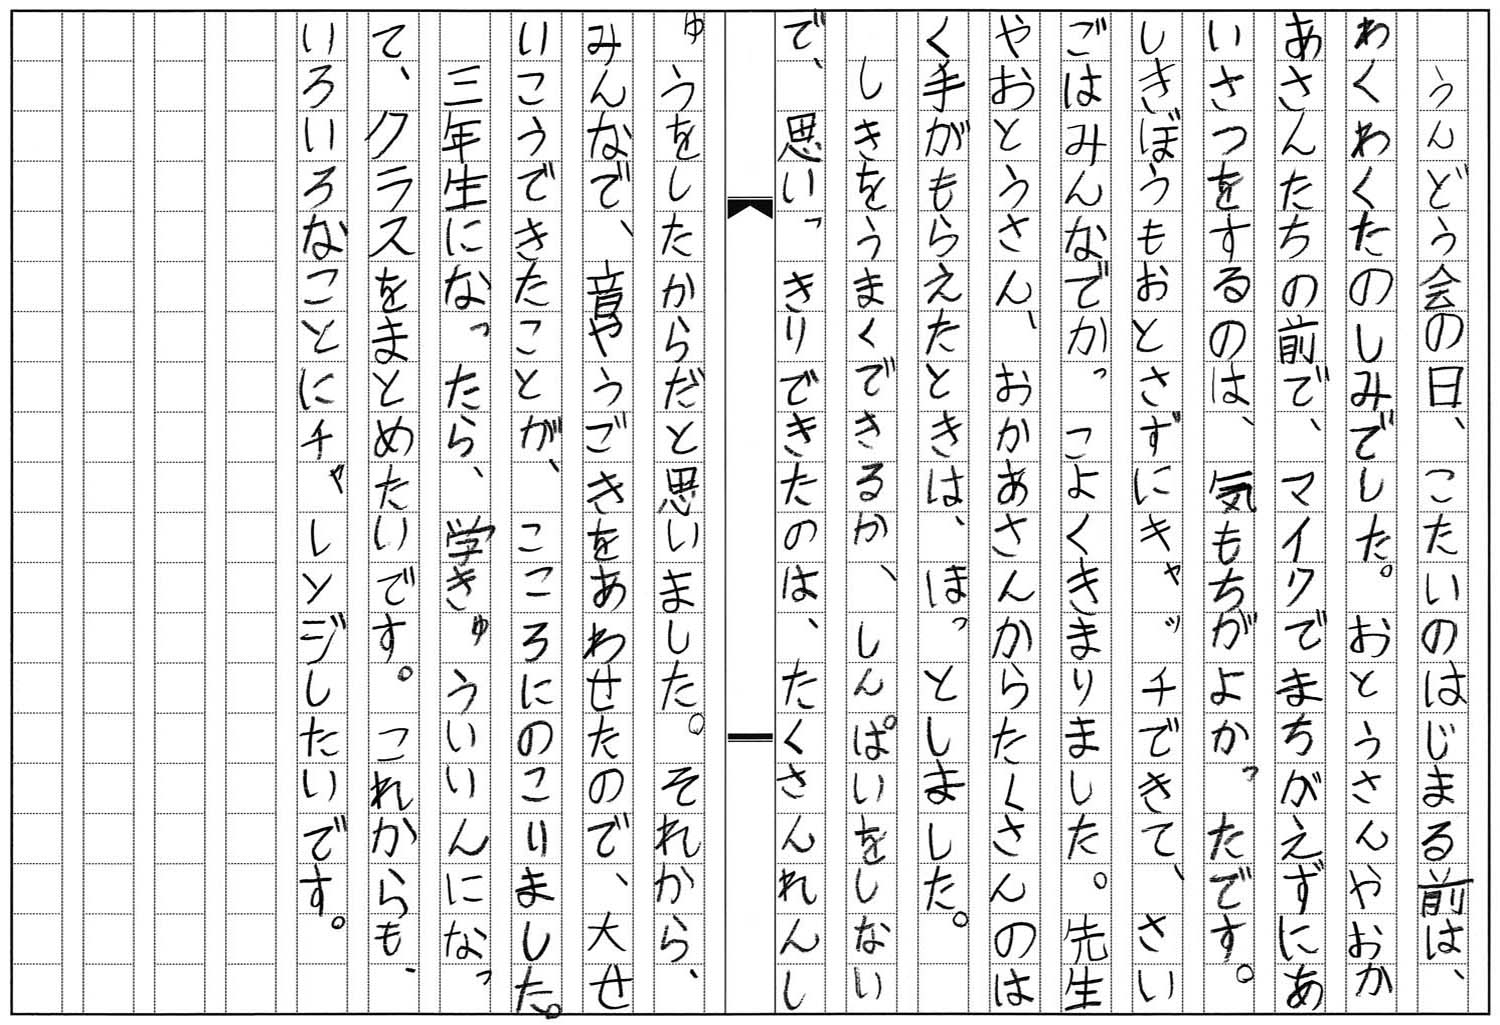 うんどう会の日、こたいのはじまる前は、
わくわくたのしみでした。おとうさんやおか
あさんたちの前で、マイクでまちがえずにあ
いさつをするのは、気もちがよかったです。
しきぼうもおとさずにキャッチできて、さい
ごはみんなでかっこよくきまりました。先生
やおとうさん、おかあさんからたくさんのは
く手がもらえたときは、ほっとしました。
しきをうまくできるか、しんぱいをしない
で、思いっきりできたのは、たくさんれんし
ゅうをしたからだと思いました。それから、
みんなで、音やうごきをあわせたので、大せ
いこうできたことが、こころにのこりました。
三年生になったら、学きゅういいんになっ
て、クラスをまとめたいです。これからも、
いろいろなことにチャレンジしたいです。